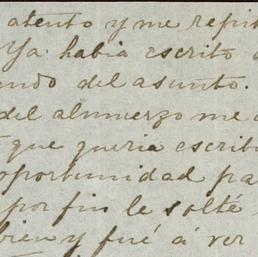 atento y me repit
Ya habia escrito
ando del asunto.
del almuerzo me
que queria escrib
oportunidad pa
por fin le solté
bien y fué á ver